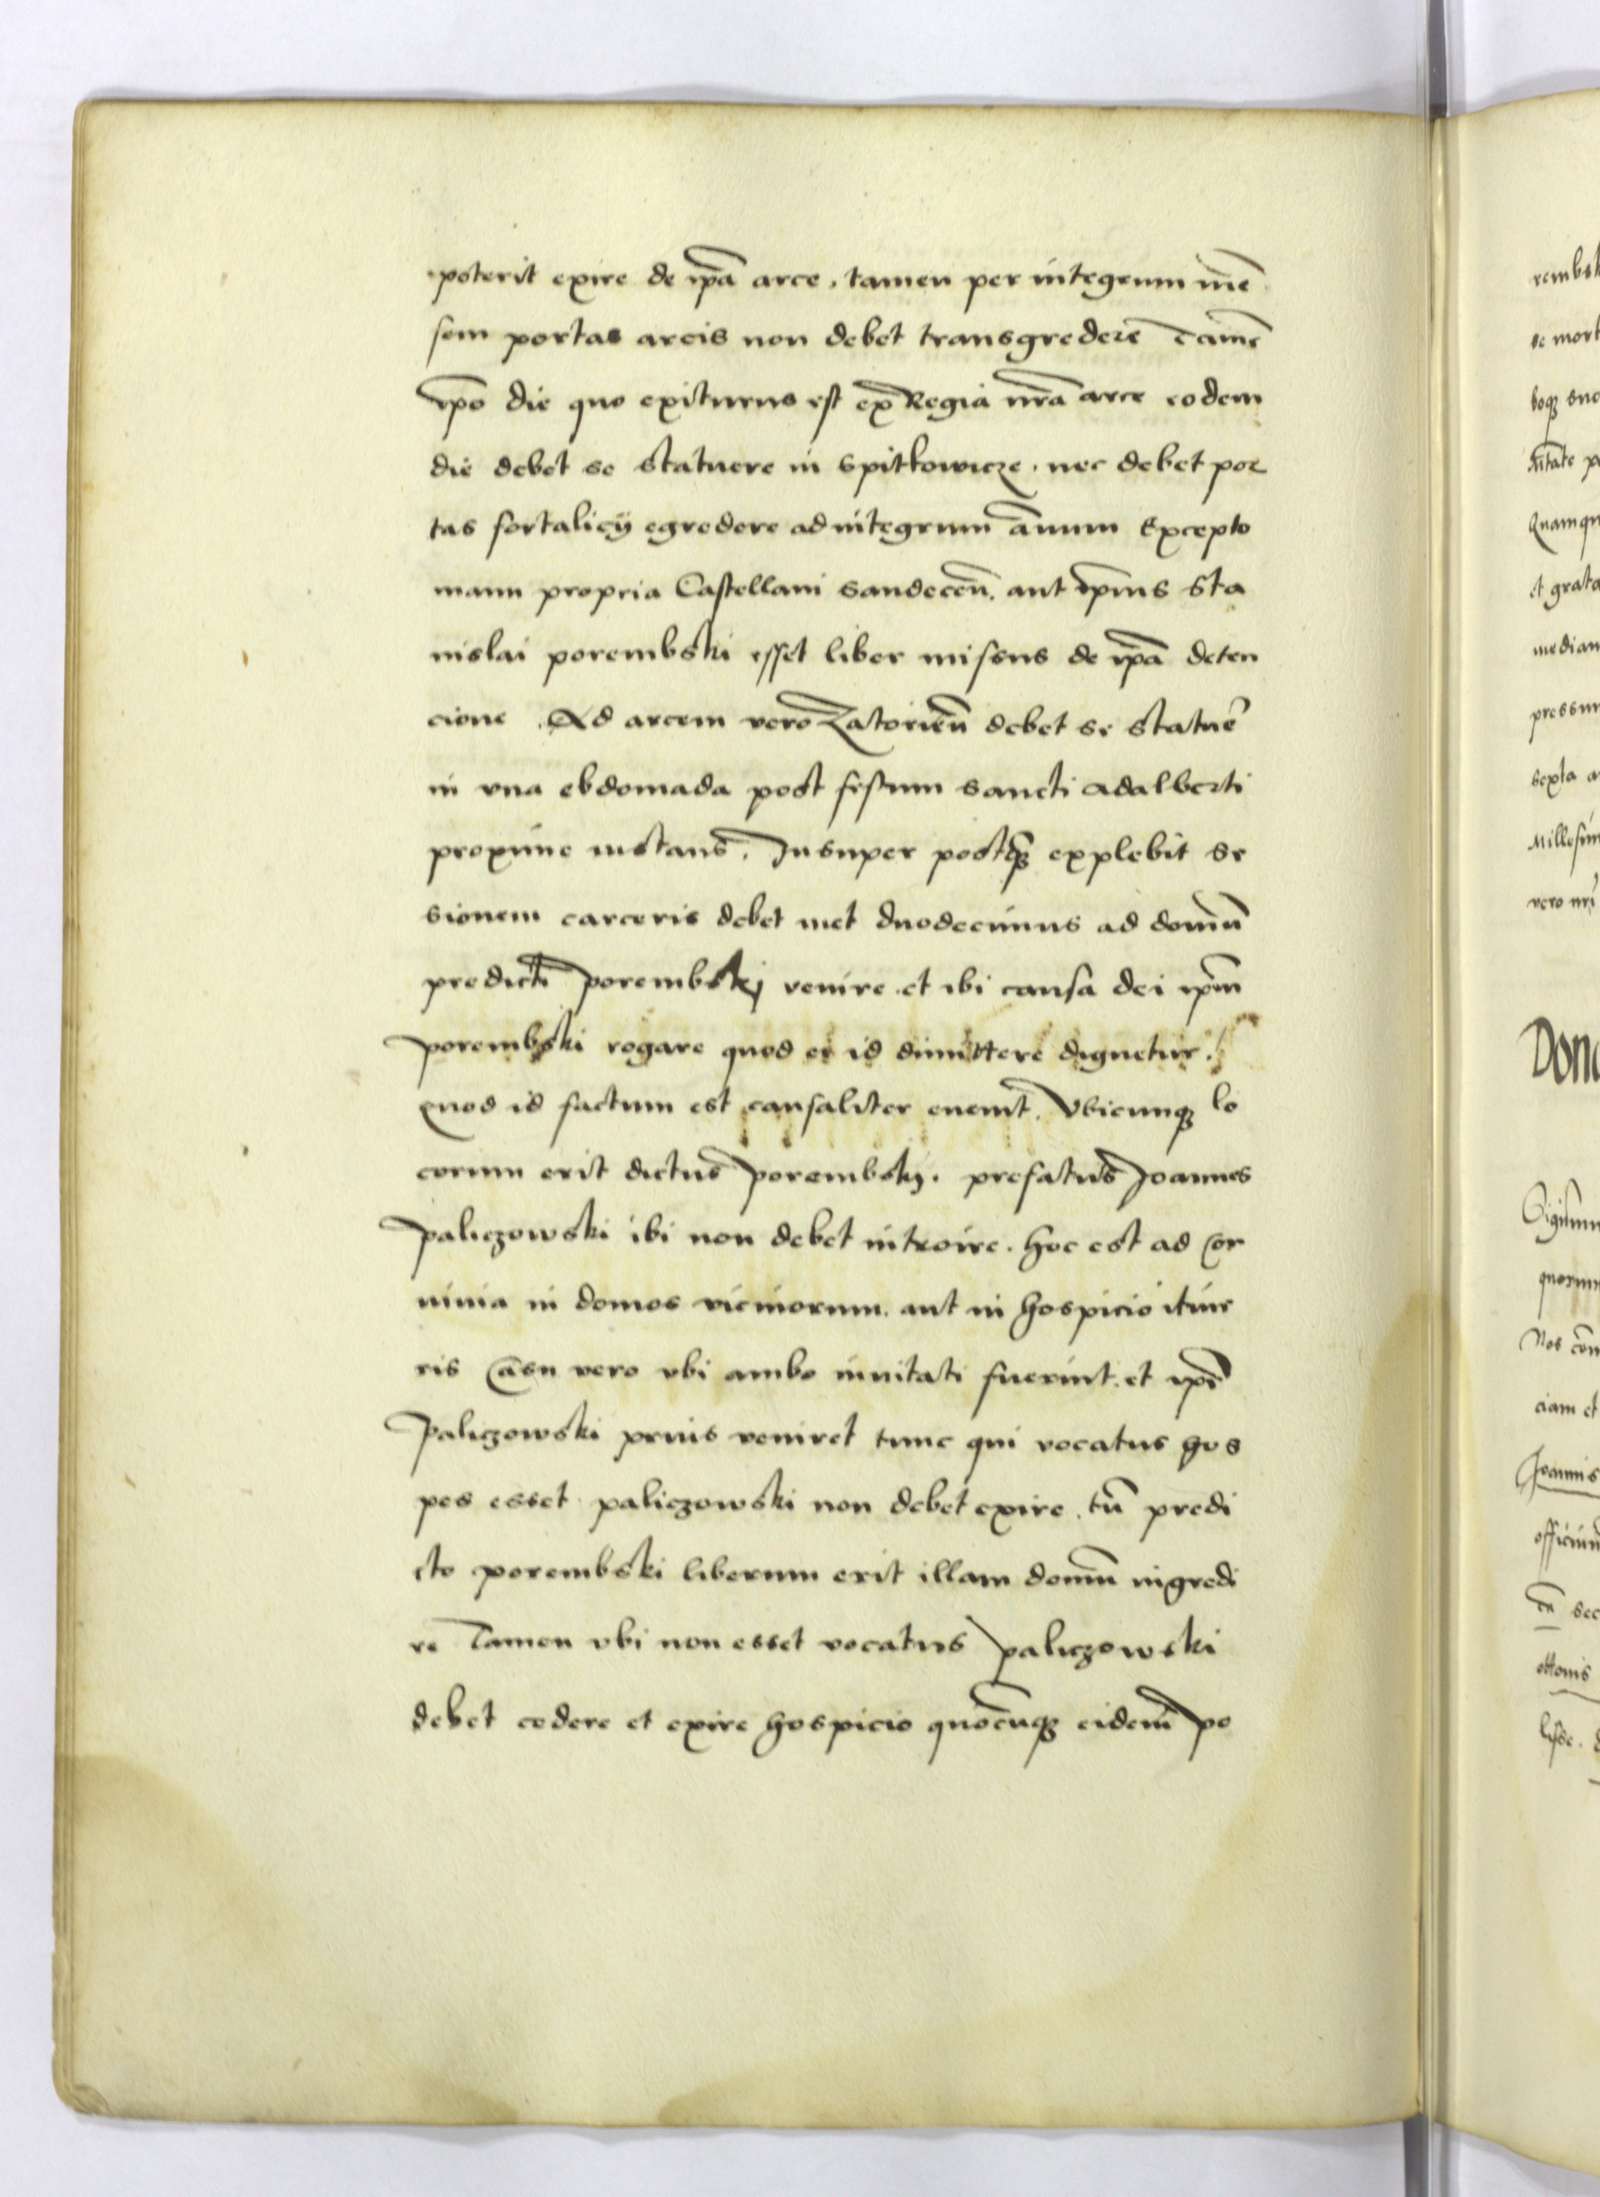 poterit exire de ip̄a arce, tamen per integrum mē
sem portas arcis non debet transgredere Tamē
ip̄o die quo exiturus est ex Regia nr̄a arce eodem
die debet se statuere in Spitkowicze. nec debet por
tas fortalicij egredere ad integrum annum Excepto
manu propria Castellani Sandecen̄. aut ip̄ius Sta
nislai porembski esset liber missus de ip̄a deten
cione. Ad arcem vero Zatorien̄ debet se statuē
in vna ebdomada post festum sancti Adalberti
proxime instans. Insuper postq̄ explebit se
sionem carceris debet met duodecimus ad domū
predicti Porembskj venire et ibi causa dei ip̄m
Porembski rogare quod ei id dimittere dignetur.
quod id factum est causaliter euenit. Vbicunq; lo
corum erit dictus Porembskj. prefatus Joannes
Paliczowski ibi non debet introire. hoc est ad Con
uiuia in domos vicinorum. aut in hospicio itine
ris Casu vero vbi ambo inuitati fuerint. et ip̄e
Paliczowski prius veniret tunc qui vocatus hos
pes esset paliczowski non debet exire. tn̄ predi
cto porembski liberum erit illam domū ingredi
re Tamen vbi non esset vocatus Paliczowski
debet cedere et exire hospicio quocūq; eidem Po
rembsk
se mort
boq; suo
Quamqu
et grata
median
pressur
sexta a
Millesim
vero nr̄i
Dona
Sigismun
quorum
Nos cōm
ciam et
Joannis
officium
ottonis